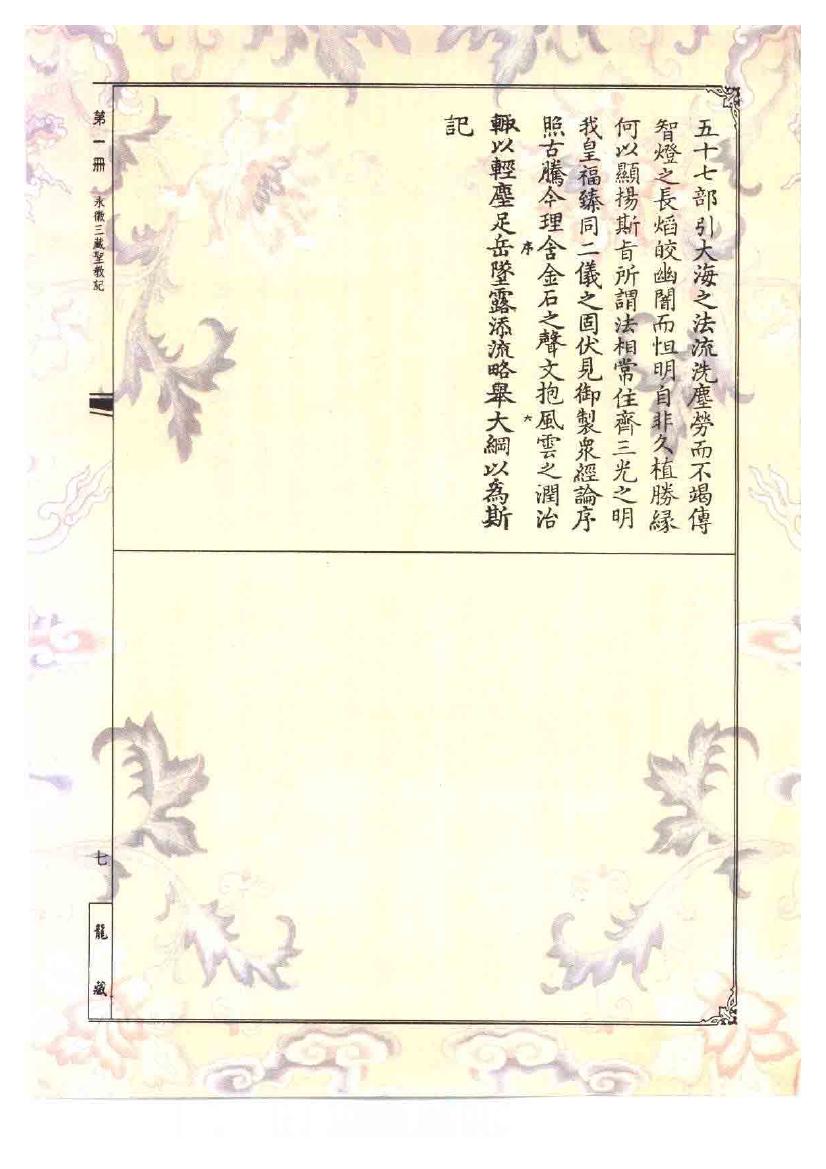 五十七部引大海之法流洗塵勞而不竭傳
智燈之長熖皎幽闇而恒明自非久植勝緣
何以顯揚斯旨所謂法相常住齊三光之明
我皇福臻同二儀之固伏見御製衆經論序
照古騰今理含金石之聲文抱風雲之潤治
序
六
輙以輕塵足岳墜露添流略舉大綱以爲斯
記
第一冊
永徽三藏聖教記
七
龍藏